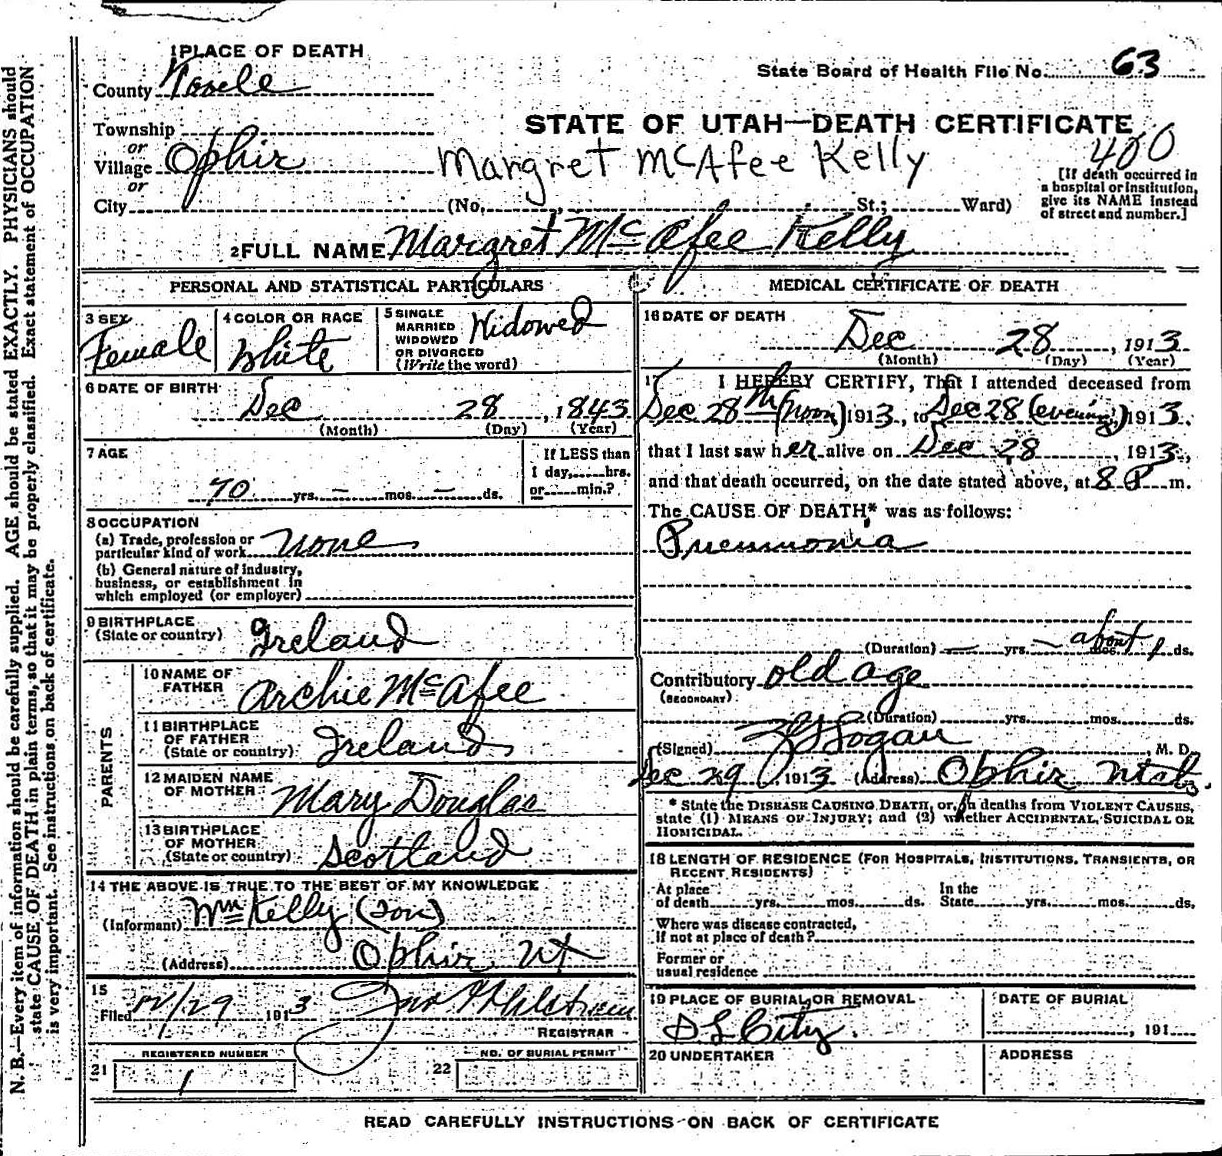 1 PLACE OF DEATH
County Tooele
State Board of Health File No. 63
Township
or
Village Ophir
or
City (No. St.; Ward)
STATE OF UTAH—DEATH CERTIFICATE
400
Margret McAfee Kelly
[If death occurred in
a hospital or institution,
give its NAME instead
of street and number.]
2 FULL NAME Margret McAfee Kelly
PERSONAL AND STATISTICAL PARTICULARS
3 SEX
Female
4 COLOR OR RACE
White
5 SINGLE
MARRIED
WIDOWED
OR DIVORCED
(Write the word)
Widowed
6 DATE OF BIRTH
Dec 28, 1843
(Month) (Day) (Year)
7 AGE
70 yrs. — mos. — ds.
If LESS than
1 day, hrs.
or min.?
8 OCCUPATION
(a) Trade, profession or
particular kind of work none
(b) General nature of industry,
business, or establishment in
which employed (or employer)
9 BIRTHPLACE
(State or country) Ireland
PARENTS
10 NAME OF
FATHER Archie McAfee
11 BIRTHPLACE
OF FATHER
(State or country) Ireland
12 MAIDEN NAME
OF MOTHER Mary Douglas
13 BIRTHPLACE
OF MOTHER
(State or country) Scotland
14 THE ABOVE IS TRUE TO THE BEST OF MY KNOWLEDGE
(Informant) Wm Kelly (son)
(Address) Ophir Ut
15
Filed 12/29 1913
REGISTRAR
21 REGISTERED NUMBER
1
22 NO. OF BURIAL PERMIT
MEDICAL CERTIFICATE OF DEATH
16 DATE OF DEATH
Dec 28, 1913
(Month) (Day) (Year)
17 I HEREBY CERTIFY, That I attended deceased from
Dec 28th (noon) 1913, to Dec 28 (evening) 1913.
that I last saw her alive on Dec 28, 1913,
and that death occurred, on the date stated above, at 8 P m.
The CAUSE OF DEATH* was as follows:
Pneumonia
(Duration) — yrs. — mos. about 1 ds.
Contributory old age
(SECONDARY)
(Duration) yrs. mos. ds.
(Signed) Logan, M. D.
Dec 29 1913 (Address) Ophir Utah.
* State the DISEASE CAUSING DEATH, or, in deaths from VIOLENT CAUSES,
state (1) MEANS OF INJURY; and (2) whether ACCIDENTAL, SUICIDAL OR
HOMICIDAL.
18 LENGTH OF RESIDENCE (FOR HOSPITALS, INSTITUTIONS, TRANSIENTS, OR
RECENT RESIDENTS)
At place
of death yrs. mos. ds.
In the
State yrs. mos. ds.
Where was disease contracted,
If not at place of death?
Former or
usual residence
19 PLACE OF BURIAL OR REMOVAL
S L City.
DATE OF BURIAL
, 191
20 UNDERTAKER
ADDRESS
READ CAREFULLY INSTRUCTIONS ON BACK OF CERTIFICATE
N. B.—Every item of information should be carefully supplied. AGE should be stated EXACTLY. PHYSICIANS should
state CAUSE OF DEATH in plain terms, so that it may be properly classified. Exact statement of OCCUPATION
is very important. See instructions on back of certificate.